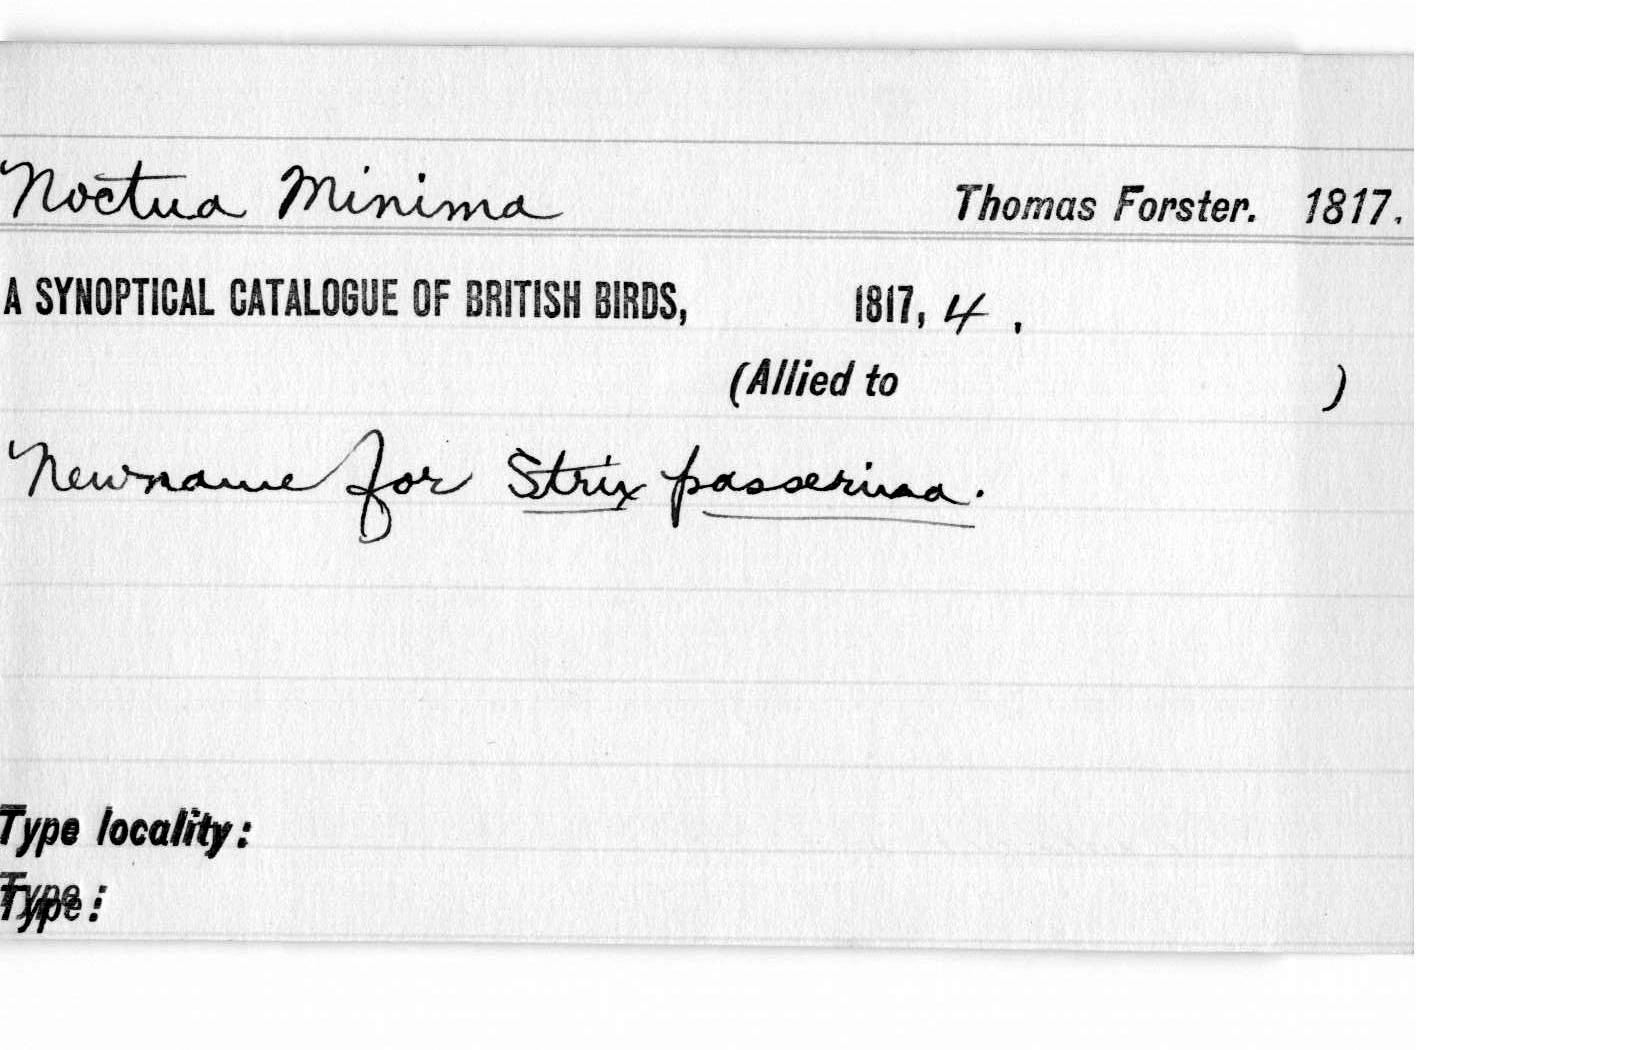 Noctua Minima Thomas Forster. 1817.
A SYNOPTICAL CATALOGUE OF BRITISH BIRDS, 1817, 4 ,
(Allied to )
Newname for Strix passerina.
Type locality:
Type: